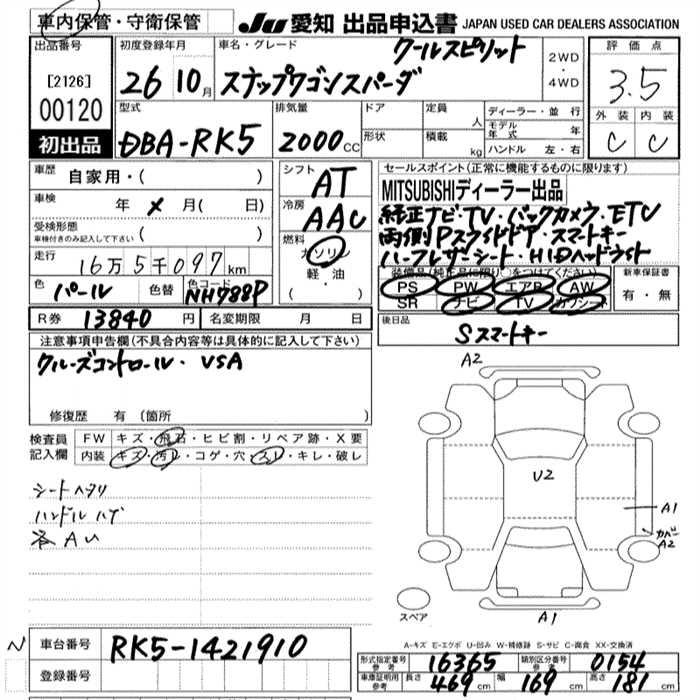 車内保管・守衛保管
JU愛知 出品申込書 JAPAN USED CAR DEALERS ASSOCIATION
出品番号
[2126]
00120
初出品
初度登録年月
26 10月
車名・グレード
クールスピリット
ステップワゴンスパーダ
2WD
・
4WD
評価点
3.5
外装 内装
C C
型式
DBA-RK5
排気量
2000cc
ドア
形状
定員 人
積載 kg
ディーラー・並行
モデル年式 年
ハンドル 左・右
車歴
自家用・( )
車検 年 メ 月( 日)
受検形態
車検付きのみ記入して下さい
( )
走行 16万5千097km
色 パール 色替 色コード NH788P
シフト
AT
冷房
AAC
燃料
ガソリン
軽・油
( )
セールスポイント(正常に機能するものに限ります)
MITSUBISHIディーラー出品
純正ナビ・TV・バックカメラ・ETC
両側Pスライドドア・スマートキー
ハーフレザーシート・HIDヘッドライト
装備品(純正品に限り○をつけてください)
PS PW エアB AW
SR ナビ TV カワシート
新車保証書
有・無
R券 13840円 名変期限 月 日
後日品
Sスマートキー
注意事項申告欄(不具合内容等は具体的に記入して下さい)
クルーズコントロール・VSA
修復歴 有(箇所 )
検査員
記入欄
FW キズ・飛石・ヒビ割・リペア跡・X要
内装 キズ・汚レ・コゲ・穴・スレ・キレ・破レ
シートヘタリ
ハンドルハゲ
各AU
A2
U2
A1
カバー
A2
スペア
A1
A-キズ E-エクボ U-凹み W-補修跡 S-サビ C-腐食 XX-交換済
N
車台番号 RK5-1421910
登録番号
形式指定番号参考 16365 類別区分番号参考 0154
車庫証明用参考 長さ 469cm 幅 169cm 高さ 181cm